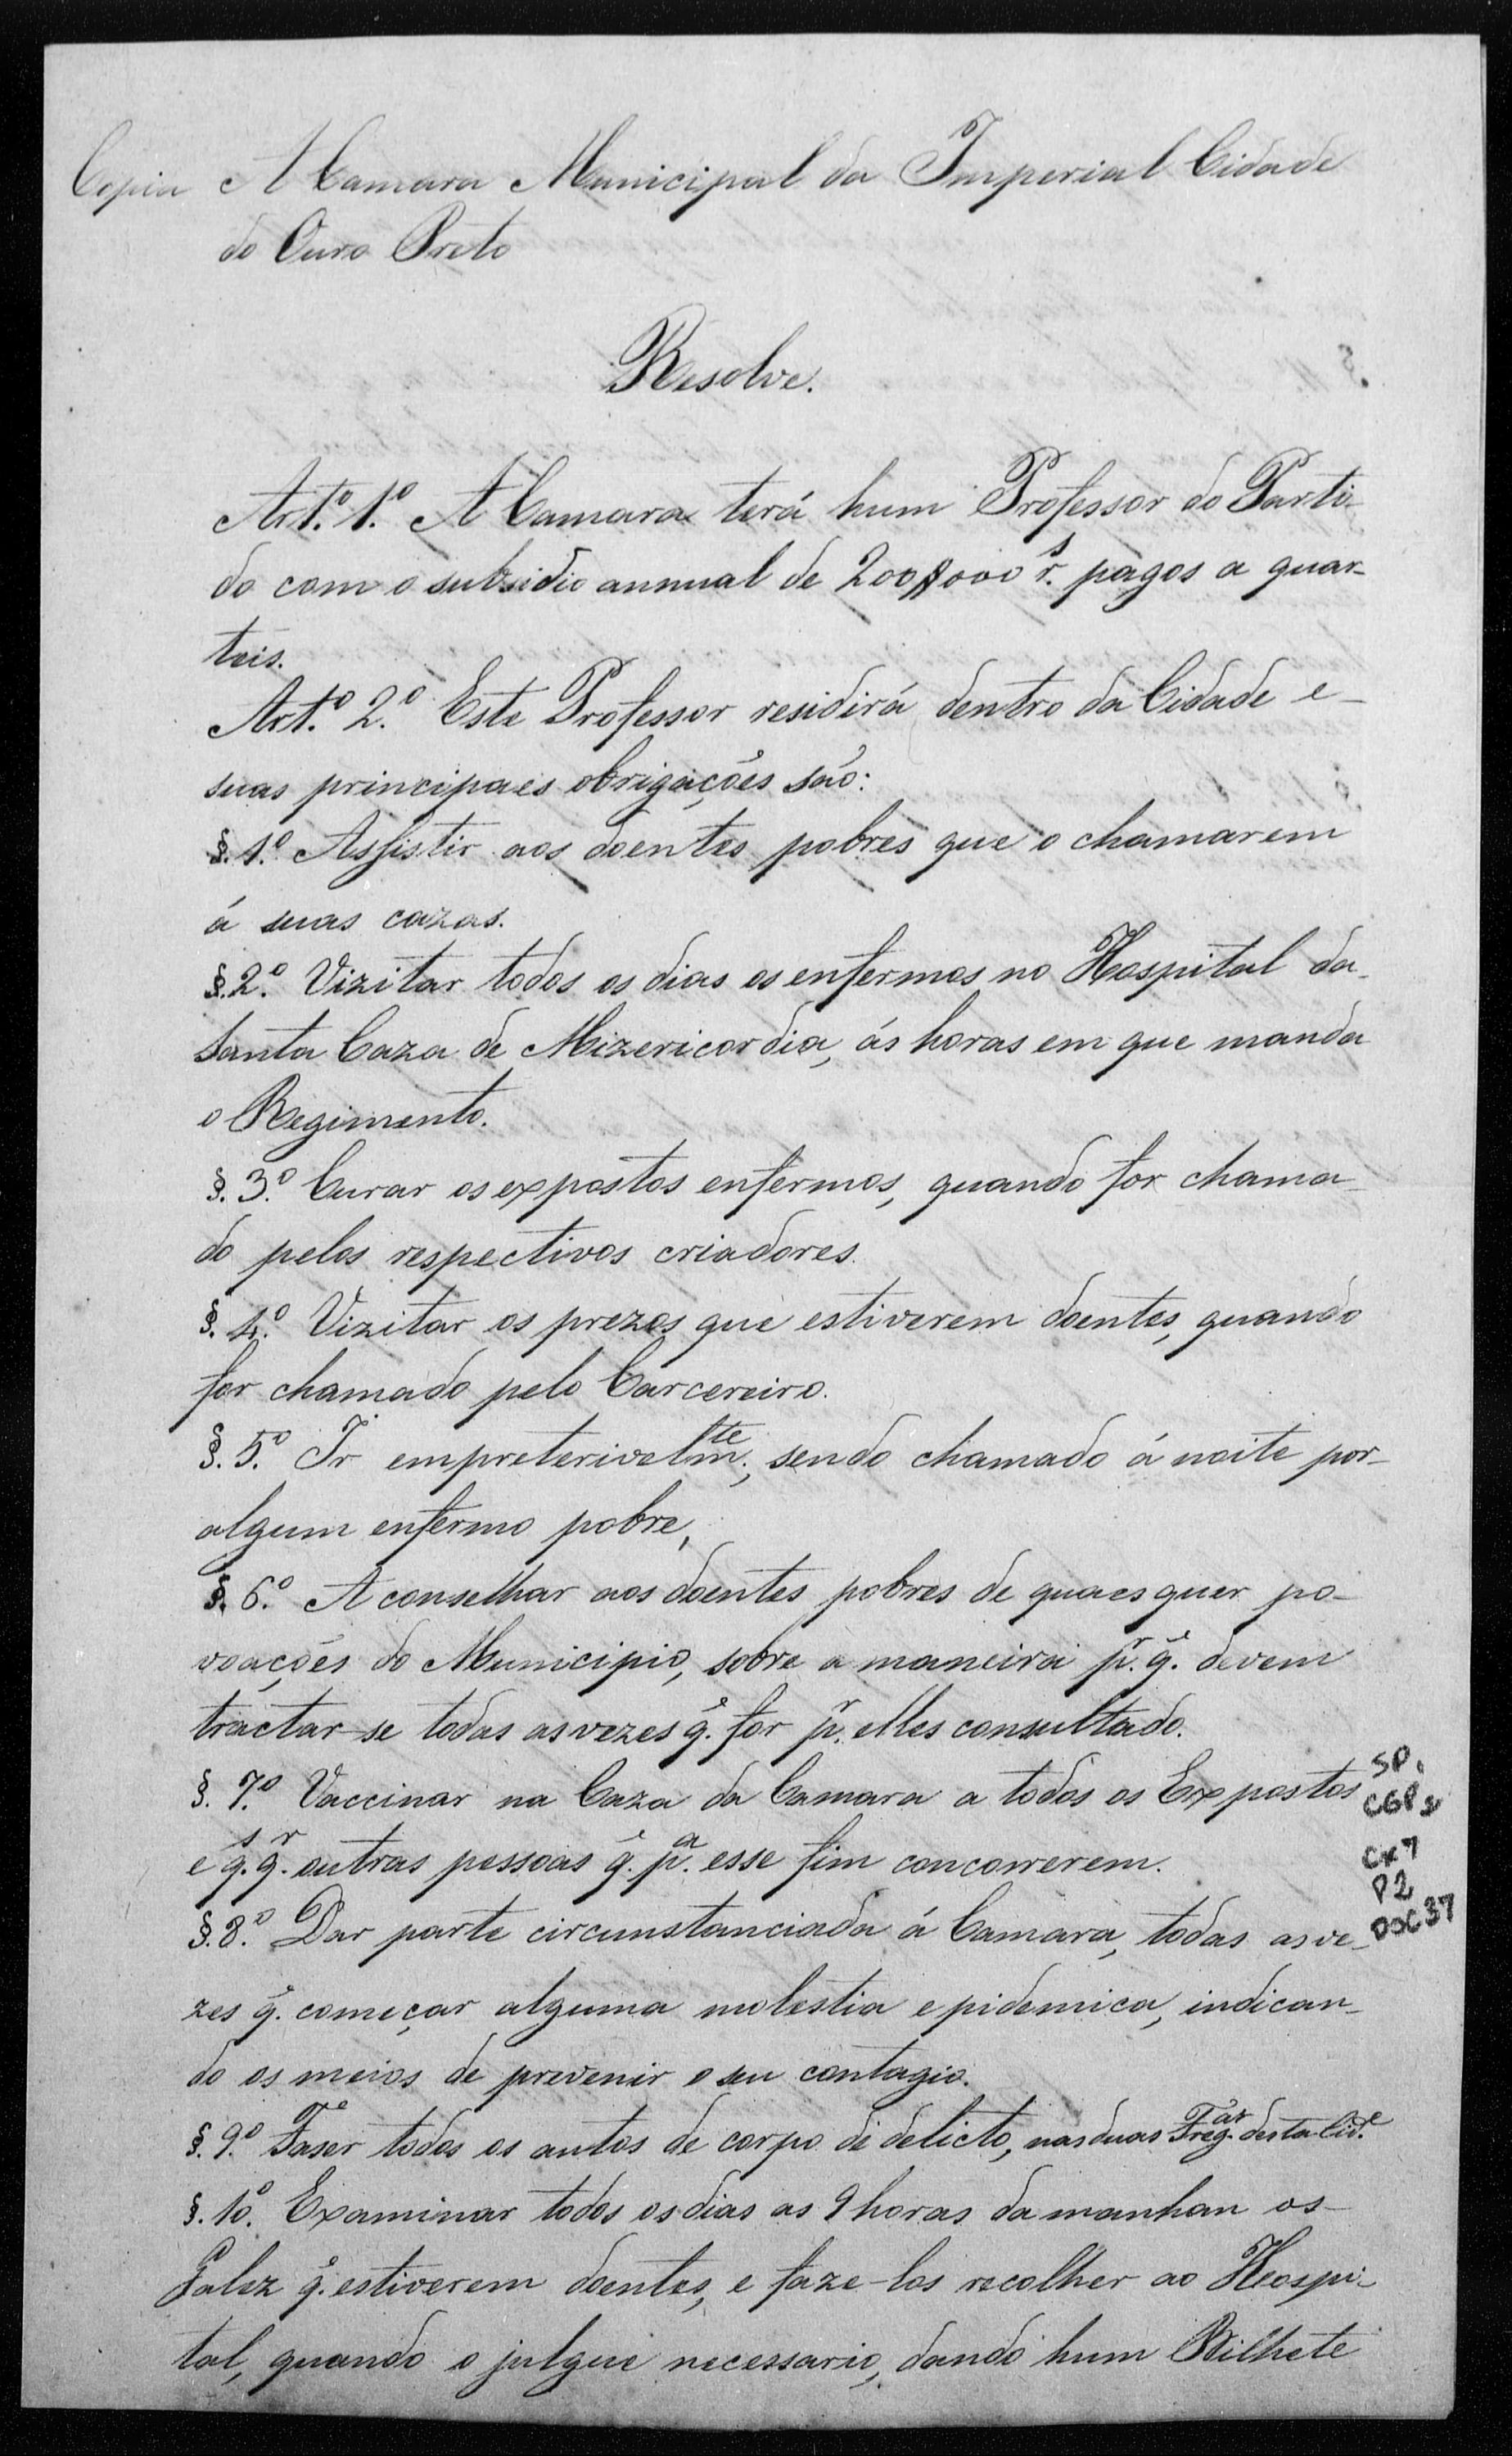 Copia A Camara Municipal da Imperial Cidade
do Ouro Preto
Resolve.
Art.º 1.º A Camara terá hum Professor do Parti-
do com o subsidio annual de 200$000 r.s pagos a quar-
teis.
Art.º 2.º Este Professor residirá dentro da Cidade e
suas principaes obrigações são:
§. 1.º Assistir aos doentes pobres que o chamarem
á suas cazas.
§. 2.º Vizitar todos os dias os enfermos no Hospital da
Santa Caza de Mizericordia, ás horas em que manda
o Regimento.
§. 3.º Curar os expostos enfermos, quando for chama-
do pelos respectivos criadores.
§. 4.º Vizitar os prezos que estiverem doentes, quando
for chamado pelo Carcereiro.
§. 5.º Ir empreterivelm.te, sendo chamado á noite por
algum enfermo pobre,
§. 6.º Aconselhar aos doentes pobres de quaesquer po-
voações do Municipio, sobre a maneira p.r q.e devem
tractar-se todas as vezes q.e for p.r elles consultado.
§. 7.º Vaccinar na Caza da Camara a todos os Expostos
e q.s q.r outras pessoas q.e p.a esse fim concorrerem.
§. 8.º Dar parte circumstanciada á Camara, todas as ve-
zes q.e começar alguma molestia epidemica, indican-
do os meios de prevenir o seu contagio.
§. 9.º Faser todos os autos de corpo de delicto, nas duas Freg.as desta Cid.e
§. 10.º Examinar todos os dias as 9 horas da manhan os
Galez q.e estiverem doentes, e faze-los recolher ao Hospi-
tal, quando o julgue necessario, dando hum Bilhete
SP.
CGP2
Cx7
P2
DOC37